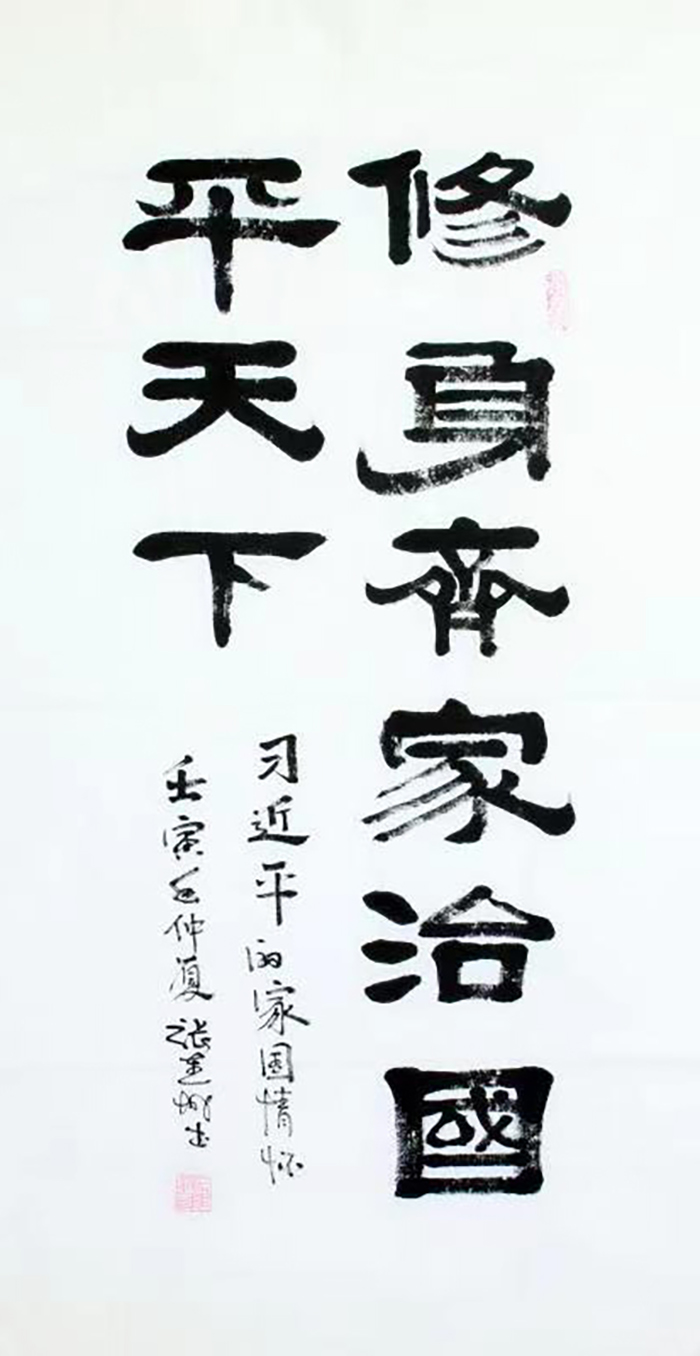 修身齊家治國
平天下
习近平的家国情怀
壬寅年仲夏 张建 书